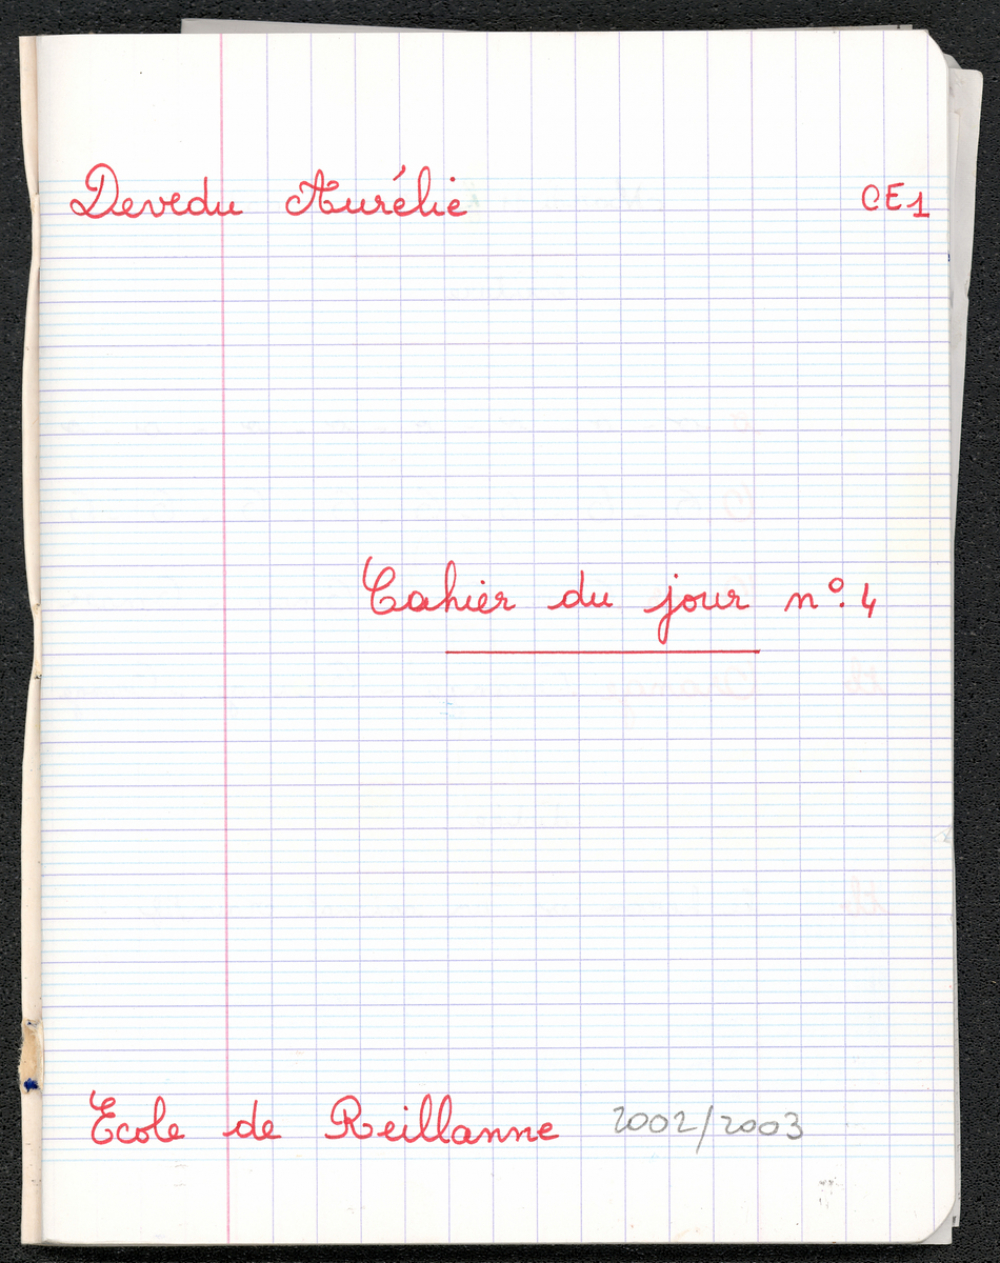 Devedu Aurélie CE1
Cahier du jour n°.4
Ecole de Reillanne 2002/2003